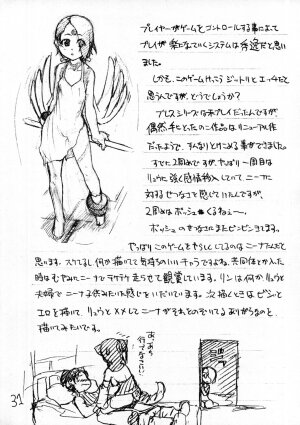 プレイヤーがゲームをコントロールする事によって
プレイが楽になっていくシステムは秀逸だと思い
ました。
しかも、このゲームけっこうジットリとエッチだて
思うんですが、どうでしょうか?
ブレスシリーズは未プレイだったんですが、
偶然手にとったこの作品はリニューアル作
だったようで、すんなりとけこめる事ができました。
すでに2周めですが、やっぱり一周目は
リュウに強く感情移入していて、ニーナに
対するせつなさを感じていたんですが、
2周めはボッシュくるねぇー。
ボッシュのせつなさにまたピンピンきてます。
やっぱりこのゲームをやらしくしてるのはニーナなんだて
思います。スケてるし何か描いてて気持ちのいいキャラですよね。共同体とか入った
時はむやみにニーナでテケテケ走らせて観賞しています。リンは何かリュウと
夫婦でニーナ子供みたいな感じをいだいています。次描くときはビシッと
エロを描いて、リュウとメメしてニーナがそれをのぞいてるありがちなのを
描いてみたいです。
31